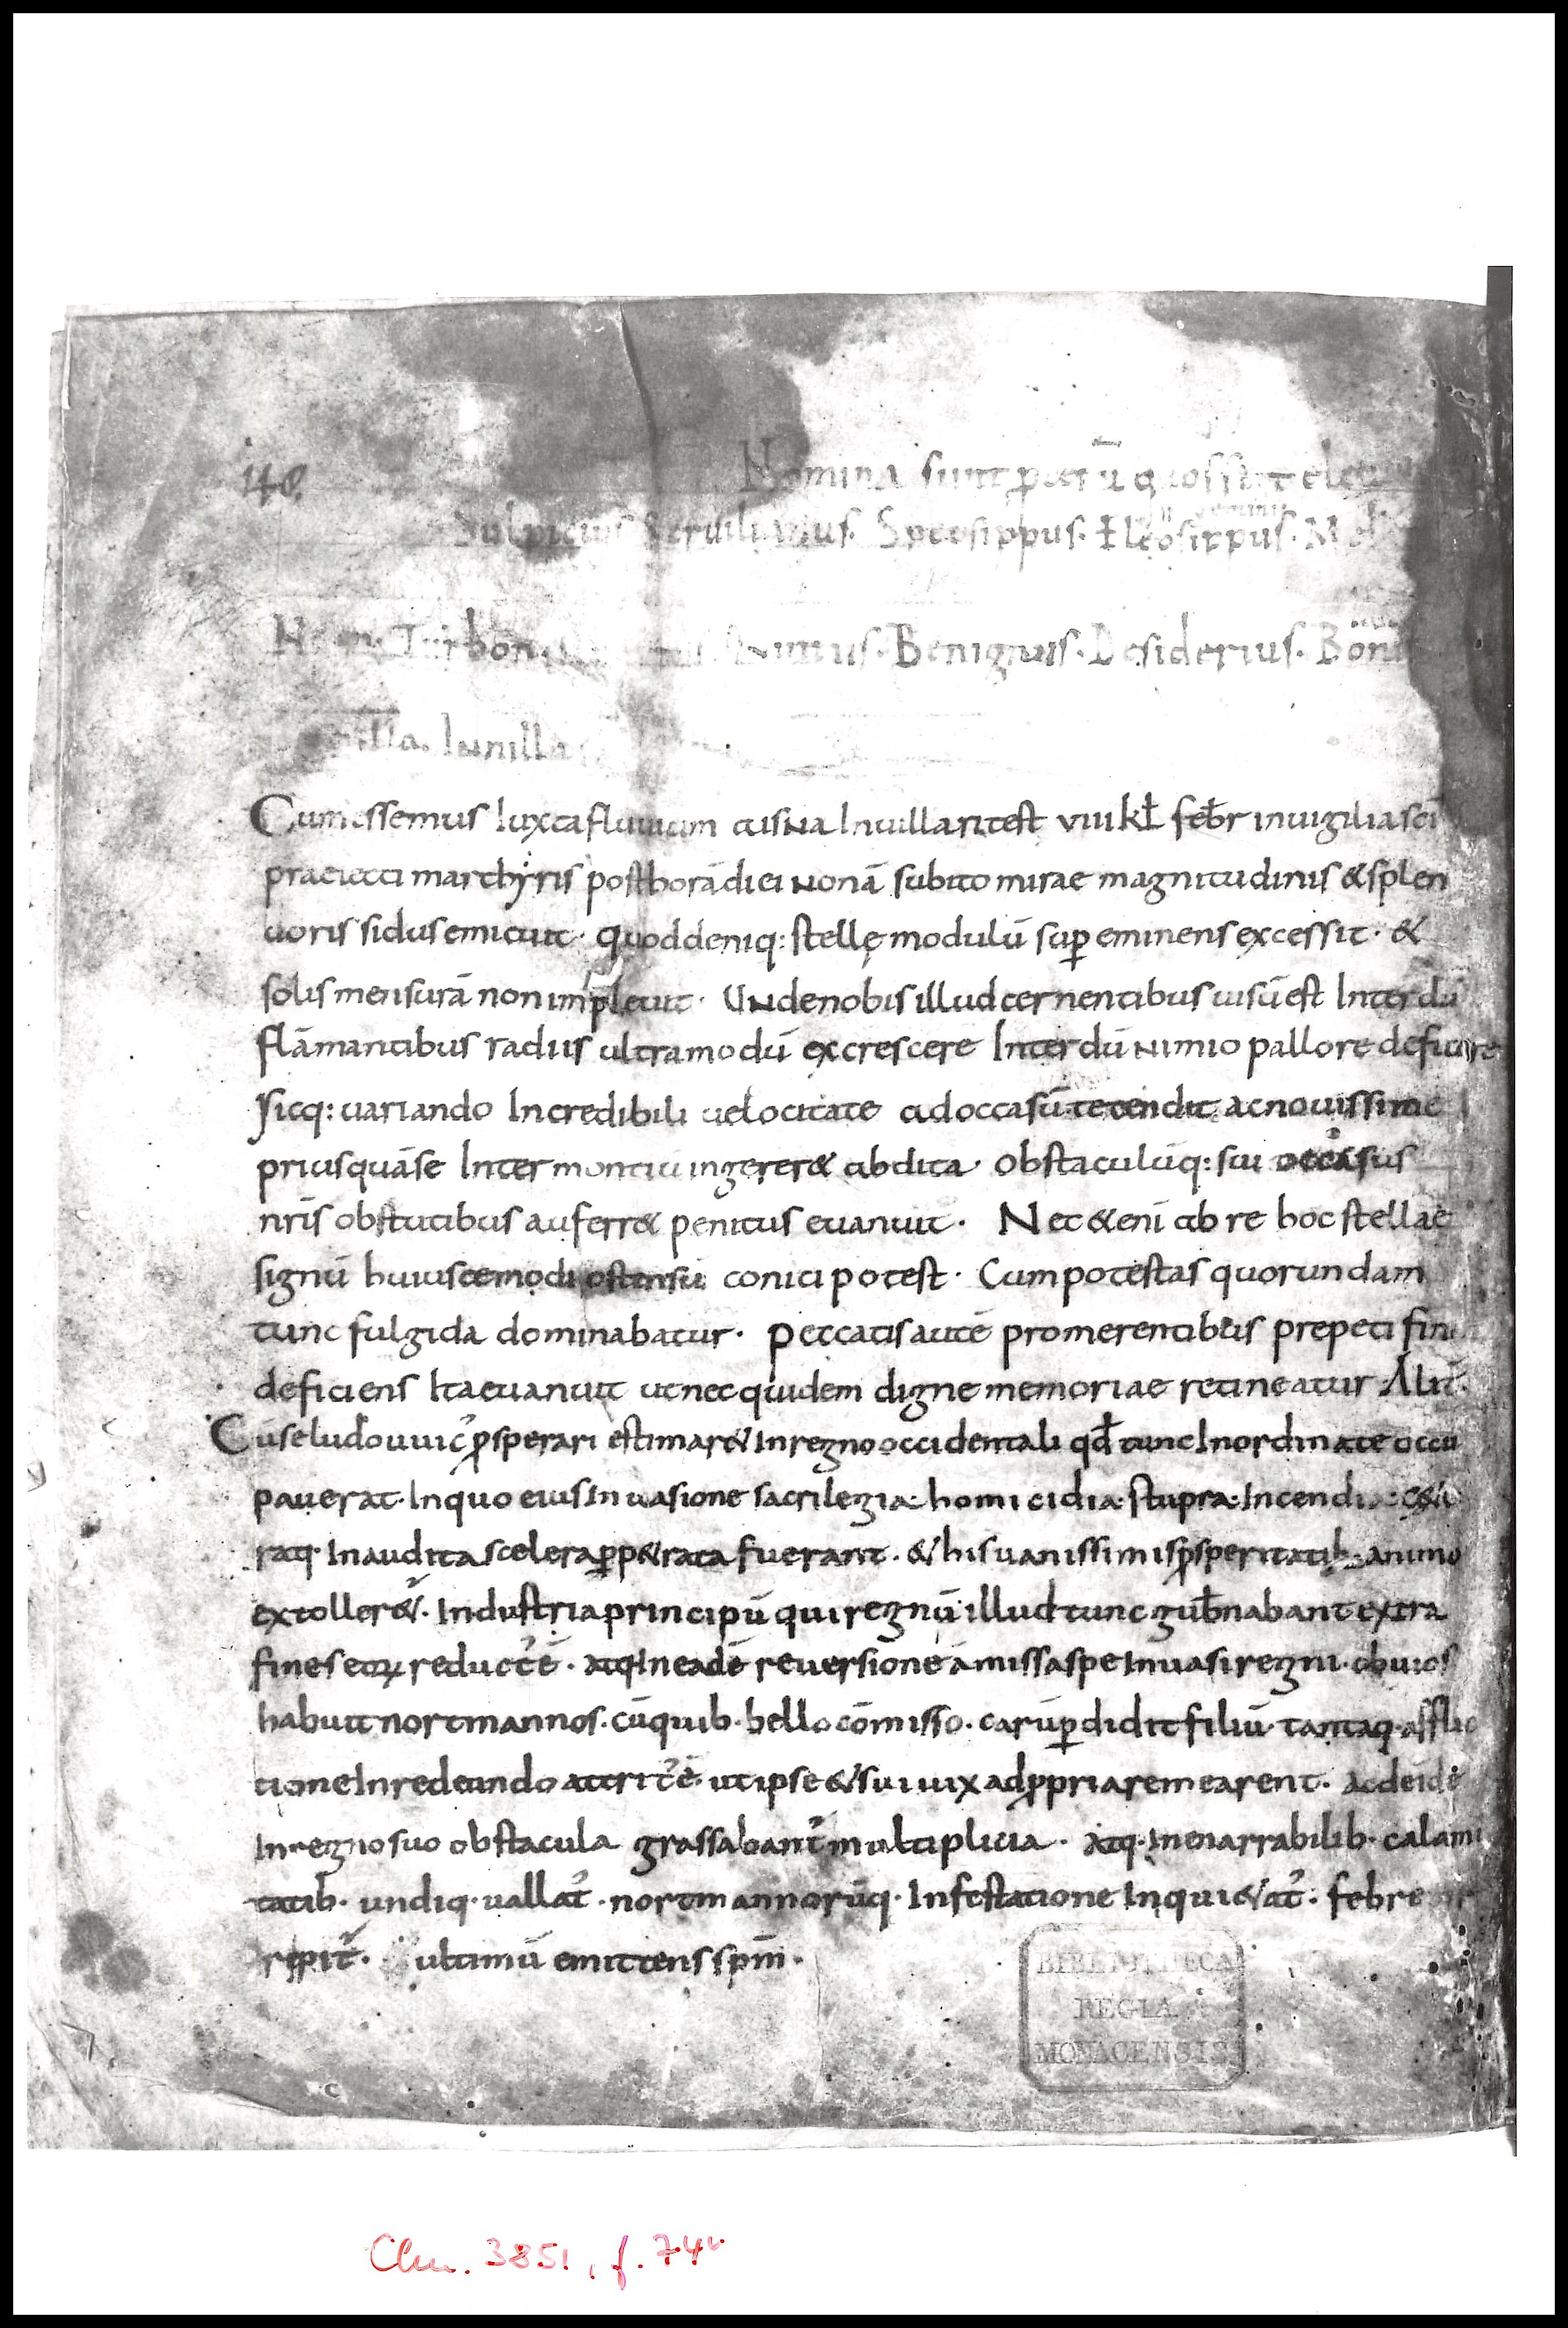 Nomina sunt
Sulpicius Servilianus. Speosippus. Eleosippus. M
Neon. Turbon. Benignus. Desiderius. Bon
illa. Iunilla
Cum essemus Iuxta fluuium aisna In uilla ritest viiii kƚ feƀr in uigilia sc̄i
praeiecti marthyris post horā diei nonā subito mirae magnitudinis & splen
doris sidus emicuit · quod deniq: stellę modulū sup̄ eminens excessit · &
solis mensurā non impleuit · Unde nobis illud cernentibus uisū est Interdū
flāmantibus radiis ultra modū excrescere Interdū nimio pallore deficere
sicq: uariando Incredibili uelocitate ad occasū tetendit ac nouissime
priusquā se Inter montiū ingerer& abdita · obstaculūq: sui occasus
nr̄is obtutibus auferr& penitus euanuit · Nec &eni ab re hoc stellae
signū huiuscemodi ostensū conici potest · Cum potestas quorundam
tunc fulgida dominabatur · peccatis autē promerentibus prepeti fini
deficiens Ita euanuit ut nec quidem digne memoriae retineatur · Alit̄.
Cū se ludouuic᾽ p̱sperari estimar& In regno occidentali qd̄ tunc Inordinate occu
pauerat · In quo eius Inuasione sacrilegia: homicidia: stupra: Incendia: c&e
raq· Inaudita scelera p̄p&rata fuerant · & his uanissimis p̱speritatib: animo
extoller& · Industria principū qui regnū illud tunc guƀnabant extra
fines eoꝝ reduct᾽ ē · atq· In eadē reuersione āmissa spe Inuasi regni · obuios
habuit nortmannos · cū quib· bello cōmisso · carū p̄didit filiū · tantaq· afflic
tione In redeundo attrit᾽ ē· ut ipse & sui uix ad p̱pria remearent · ac deīdē
In regno suo obstacula grassabant᾽ multiplicia · Atq· Inenarrabilib· calami
tatib· undiq· uallat᾽ · nortmannorūq· Infestatione Inqui&at᾽ · febre
ripit᾽ · ultimū emittens sp̄m ·
BIBLIOTHECA
REGIA
MONACENSIS
Clm. 3851, f. 74v